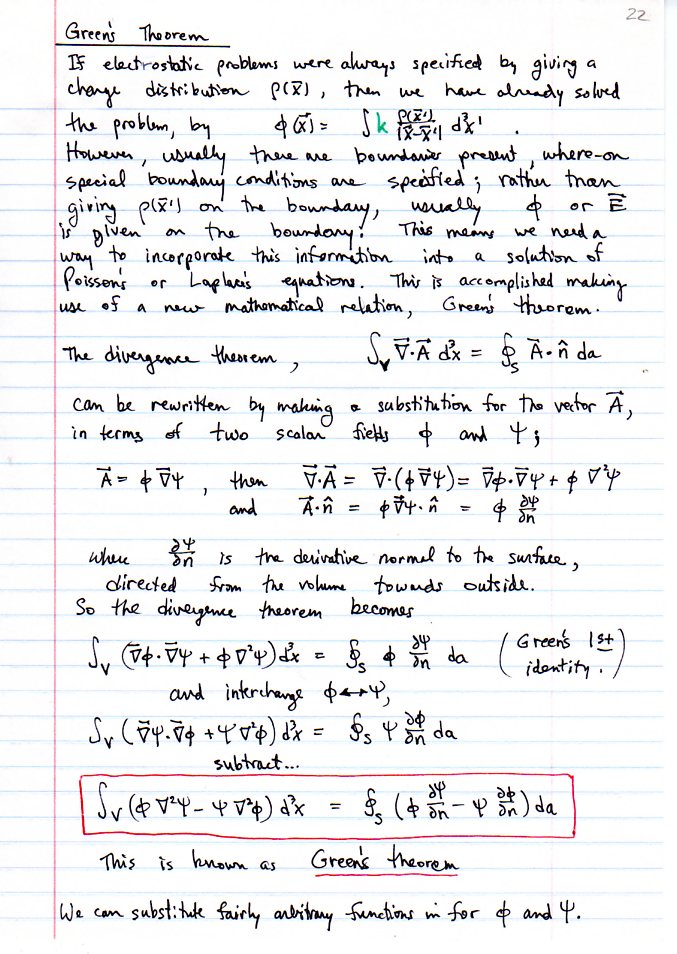 22
Green's Theorem
If electrostatic problems were always specified by giving a
charge distribution ρ(x⃗), then we have already solved
the problem, by ϕ(x⃗) = ∫ k ρ(x⃗')/|x⃗-x⃗'| d³x' .
However, usually there are boundaries present, where-on
special boundary conditions are specified; rather than
giving ρ(x⃗') on the boundary, usually ϕ or E⃗
is given on the boundary. This means we need a
way to incorporate this information into a solution of
Poisson's or Laplace's equations. This is accomplished making
use of a new mathematical relation, Green's theorem.
The divergence theorem, ∫_V ∇⃗·A⃗ d³x = ∮_S A⃗·n̂ da
can be rewritten by making a substitution for the vector A⃗,
in terms of two scalar fields ϕ and ψ;
A⃗ = ϕ ∇⃗ψ , then ∇⃗·A⃗ = ∇⃗·(ϕ∇⃗ψ) = ∇⃗ϕ·∇⃗ψ + ϕ ∇²ψ
and A⃗·n̂ = ϕ∇⃗ψ·n̂ = ϕ ∂ψ/∂n
where ∂ψ/∂n is the derivative normal to the surface,
directed from the volume towards outside.
So the divergence theorem becomes
∫_V (∇⃗ϕ·∇⃗ψ + ϕ∇²ψ) d³x = ∮_S ϕ ∂ψ/∂n da (Green's 1st identity.)
and interchange ϕ↔ψ,
∫_V (∇⃗ψ·∇⃗ϕ + ψ∇²ϕ) d³x = ∮_S ψ ∂ϕ/∂n da
subtract...
∫_V (ϕ∇²ψ - ψ∇²ϕ) d³x = ∮_S (ϕ ∂ψ/∂n - ψ ∂ϕ/∂n) da
This is known as Green's theorem
We can substitute fairly arbitrary functions in for ϕ and ψ.